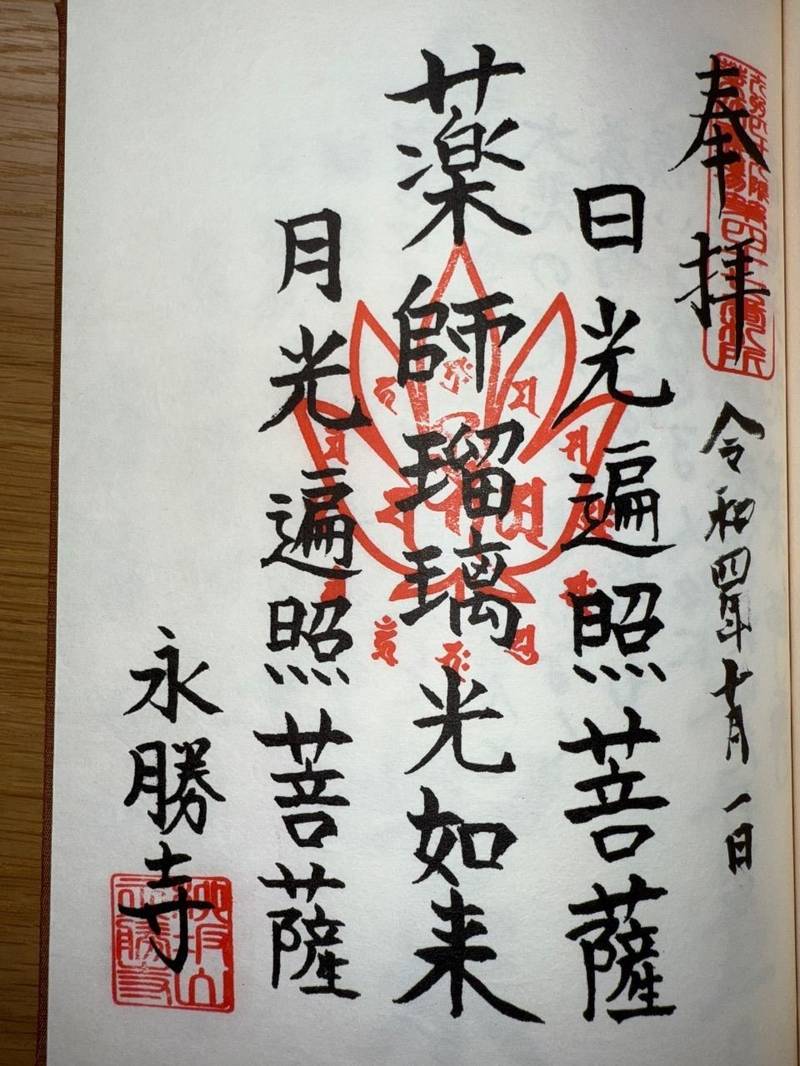 奉拝 令和四年十月一日
日光遍照菩薩
薬師瑠璃光如来
月光遍照菩薩
永勝寺